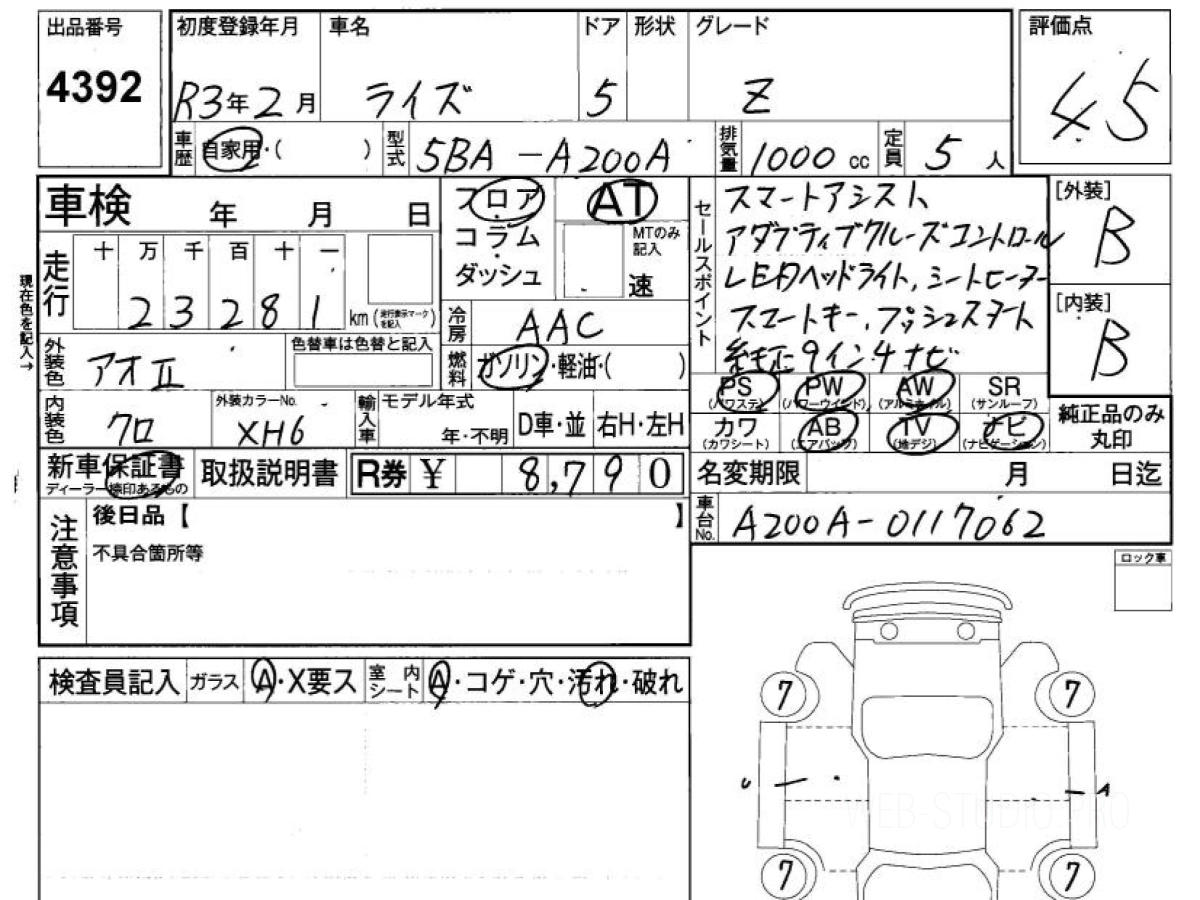 出品番号
4392
初度登録年月
R3年2月
車名
ライズ
ドア
5
形状
グレード
Z
評価点
4.5
車歴
自家用・( )
型式
5BA-A200A
排気量
1000 cc
定員
5 人
車検 年 月 日
フロア
コラム
ダッシュ
AT
MTのみ記入
速
現在色を記入→
走行
十 万 千 百 十 一
2 3 2 8 1
km (走行表示マークを記入)
冷房
AAC
外装色
アオⅡ
色替車は色替と記入
燃料
ガソリン・軽油・( )
内装色
クロ
外装カラーNo.
XH6
輸入車
モデル年式
年・不明
D車・並
右H・左H
新車保証書
ディーラー捺印あるもの
取扱説明書
R券 ¥ 8,790
セールスポイント
スマートアシスト、
アダプティブクルーズコントロール
LEDヘッドライト、シートヒーター
スマートキー、プッシュスタート
純正9インチナビ
[外装]
B
[内装]
B
PS
(パワステ)
PW
(パワーウインド)
AW
(アルミホイル)
SR
(サンルーフ)
カワ
(カワシート)
AB
(エアバッグ)
TV
(地デジ)
ナビ
(ナビゲーション)
純正品のみ
丸印
名変期限 月 日迄
車台No.
A200A-0117062
注意事項
後日品【 】
不具合箇所等
ロック車
検査員記入
ガラス
A・X要ス
室内シート
A・コゲ・穴・汚れ・破れ
7
7
U
A
WEB-STUDIO.PRO
7
7